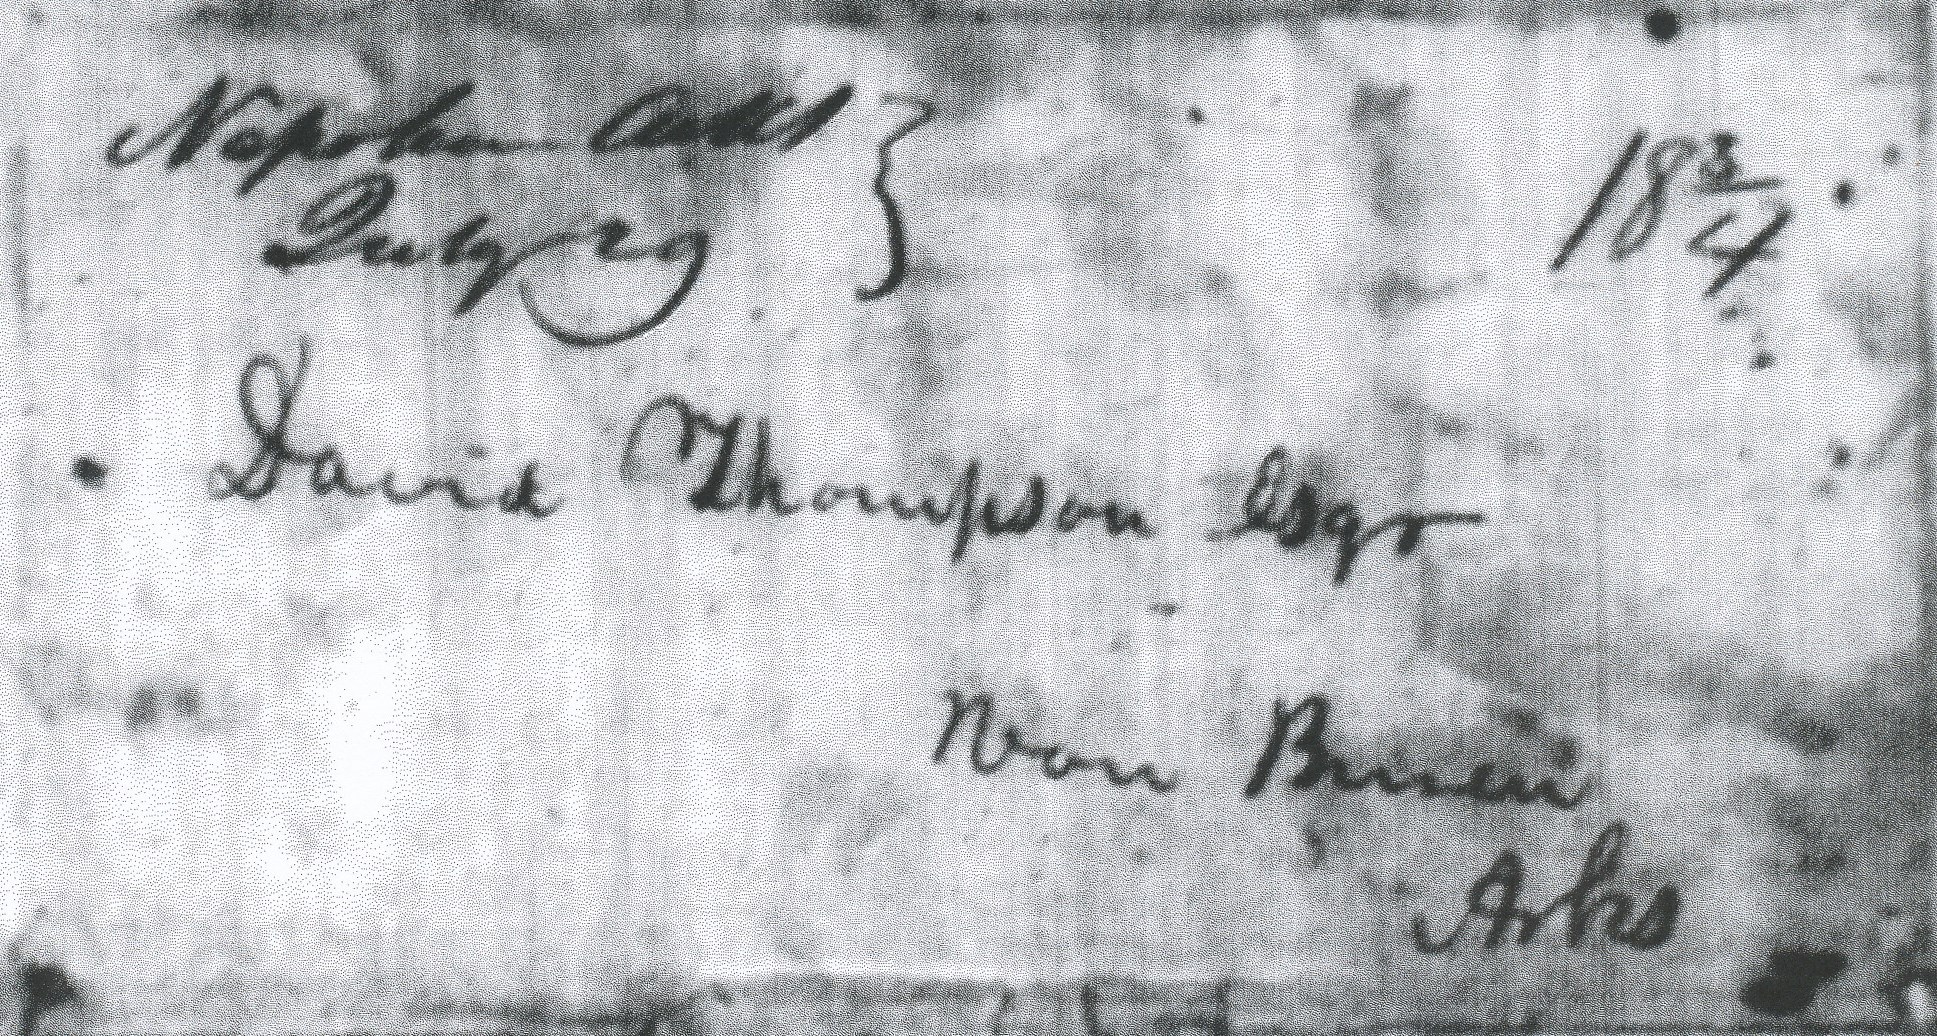 Napoleon Arks } 18 3/4
July 29
David Thompson Esqr
Van Buren
Arks